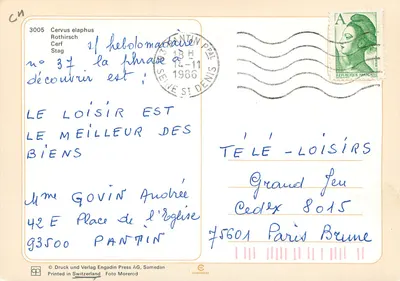 CH
3005 Cervus elaphus
Rothirsch
Cerf
Stag
s/ hebdomadaire
n° 37 la phrase à
découvrir est :
LE LOISIR EST
LE MEILLEUR DES
BIENS
Mme GOVIN Andrée
42 E Place de l'Eglise
93500 PANTIN
© Druck und Verlag Engadin Press AG, Samedan
Printed in Switzerland Foto Meerkämper
PANTIN PPAL
18 H
14-11
1986
SEINE ST DENIS
A
REPUBLIQUE FRANÇAISE
TÉLÉ-LOISIRS
Grand Jeu
Cedex 8015
75601 Paris Brune